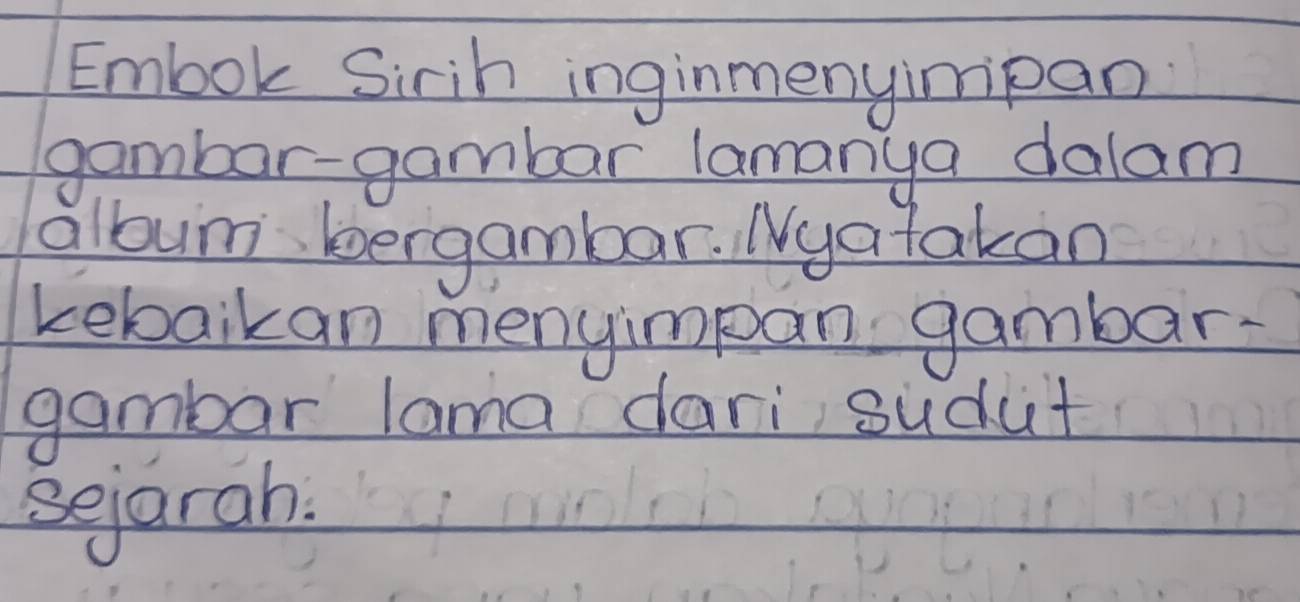 Embok Sirih inginmenyimpan
gambar-gambar lamanya dalam
album bergambar. Nyatakan
kebaikan menyimpan gambar-
gambar lama dari sudut
sejarah.